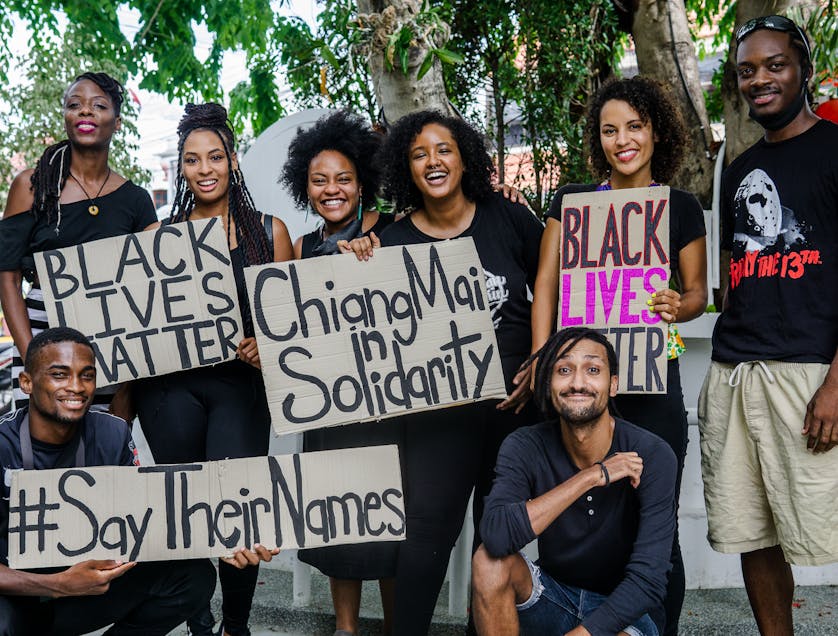 BLACK
LIVES
MATTER
ChiangMai
in
Solidarity
BLACK
LIVES
FRIDAY THE 13TH
#SayTheirNames